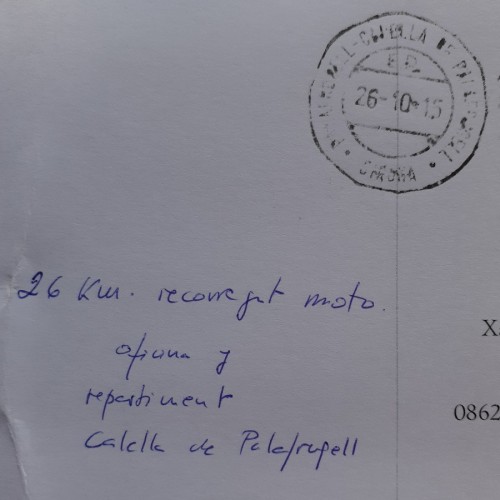 PALAFRUGELL-CALELLA DE PALAFRUGELL
E.R.
26-10-15
GIRONA
26 Km. recorregut moto.
oficina y
repartiment
Calella de Palafrugell
X
0862